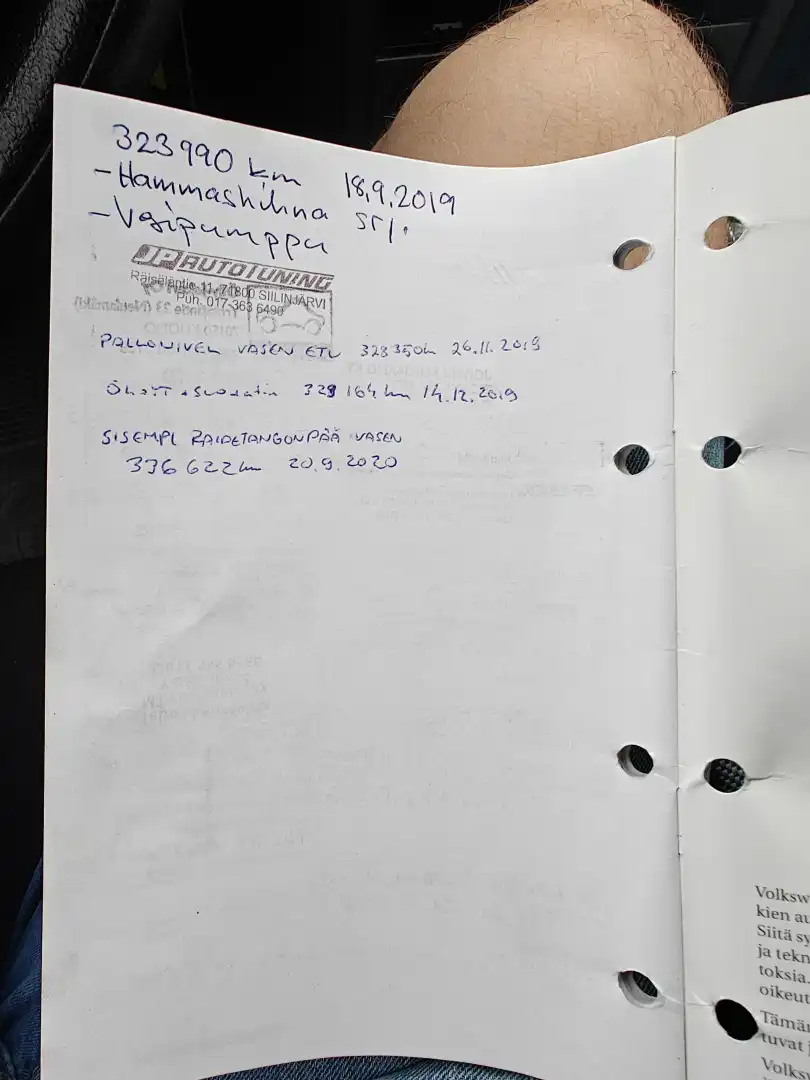 323 990 km 18.9.2019
- Hammashihna srj.
- Vesipumppu
JP AUTOTUNING
Räisäläntie 11, 71800 SIILINJÄRVI
Puh. 017-363 6490
PALLONIVEL VASEN ETU 328350km 26.11.2019
Öljyt + suodatin 329 164 km 14.12.2019
SISEMPI RAIDETANGONPÄÄ VASEN
336 622 km 20.9.2020
Volksw
kien au
Siitä sy
ja tekn
toksia.
oikeut
Tämän
tuvat j
Volks